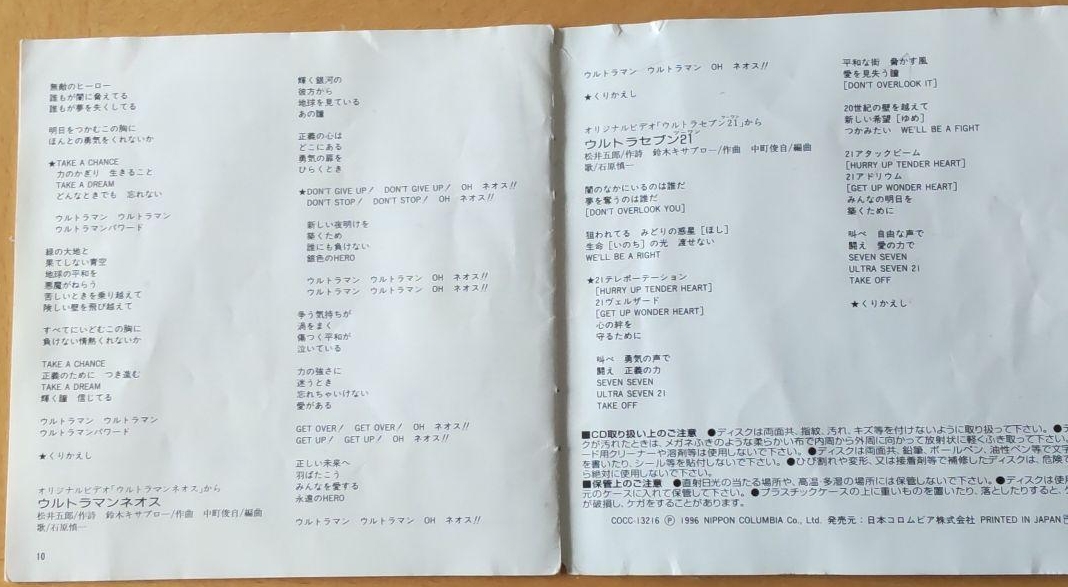 無敵のヒーロー
誰もが闇に脅えてる
誰もが夢を失くしてる
明日をつかむこの胸に
ほんとの勇気をくれないか
★TAKE A CHANCE
力のかぎり 生きること
TAKE A DREAM
どんなときでも 忘れない
ウルトラマン ウルトラマン
ウルトラマンパワード
緑の大地と
果てしない青空
地球の平和を
悪魔がねらう
苦しいときを乗り越えて
険しい壁を飛び越えて
すべてにいどむこの胸に
負けない情熱くれないか
TAKE A CHANCE
正義のために つき進む
TAKE A DREAM
輝く瞳 信じてる
ウルトラマン ウルトラマン
ウルトラマンパワード
★くりかえし
オリジナルビデオ「ウルトラマンネオス」から
ウルトラマンネオス
松井五郎/作詩 鈴木キサブロー/作曲 中町俊自/編曲
歌/石原慎一
10
輝く銀河の
彼方から
地球を見ている
あの瞳
正義の心は
どこにある
勇気の扉を
ひらくとき
★DON'T GIVE UP! DON'T GIVE UP! OH ネオス!!
DON'T STOP! DON'T STOP! OH ネオス!!
新しい夜明けを
築くため
誰にも負けない
銀色のHERO
ウルトラマン ウルトラマン OH ネオス!!
ウルトラマン ウルトラマン OH ネオス!!
争う気持ちが
渦をまく
傷つく平和が
泣いている
力の強さに
迷うとき
忘れちゃいけない
愛がある
GET OVER! GET OVER! OH ネオス!!
GET UP! GET UP! OH ネオス!!
正しい未来へ
羽ばたこう
みんなを愛する
永遠のHERO
ウルトラマン ウルトラマン OH ネオス!!
ウルトラマン ウルトラマン OH ネオス!!
★くりかえし
オリジナルビデオ「ウルトラセブン21」から
ウルトラセブン21
松井五郎/作詩 鈴木キサブロー/作曲 中町俊自/編曲
歌/石原慎一
闇のなかにいるのは誰だ
夢を奪うのは誰だ
[DON'T OVERLOOK YOU]
狙われてる みどりの惑星[ほし]
生命[いのち]の光 渡せない
WE'LL BE A RIGHT
★21テレポーテーション
[HURRY UP TENDER HEART]
21ヴェルザード
[GET UP WONDER HEART]
心の絆を
守るために
叫べ 勇気の声で
闘え 正義の力
SEVEN SEVEN
ULTRA SEVEN 21
TAKE OFF
平和な街 脅かす風
愛を見失う瞳
[DON'T OVERLOOK IT]
20世紀の壁を越えて
新しい希望[ゆめ]
つかみたい WE'LL BE A FIGHT
21アタックビーム
[HURRY UP TENDER HEART]
21アドリウム
[GET UP WONDER HEART]
みんなの明日を
築くために
叫べ 自由な声で
闘え 愛の力で
SEVEN SEVEN
ULTRA SEVEN 21
TAKE OFF
★くりかえし
■CD取り扱い上のご注意 ●ディスクは両面共、指紋、汚れ、キズ等を付けないように取り扱って下さい。●デ
クが汚れたときは、メガネふきのような柔らかい布で内周から外周に向かって放射状に軽くふき取って下さい。
ード用クリーナーや溶剤等は使用しないで下さい。●ディスクは両面共、鉛筆、ボールペン、油性ペン等で文字
を書いたり、シール等を貼付しないで下さい。●ひび割れや変形、又は接着剤等で補修したディスクは、危険で
ら絶対に使用しないで下さい。
■保管上のご注意 ●直射日光の当たる場所や、高温・多湿の場所には保管しないで下さい。●ディスクは使用
元のケースに入れて保管して下さい。●プラスチックケースの上に重いものを置いたり、落としたりすると、ケ
が破損し、ケガをすることがあります。
COCC-13216 Ⓟ 1996 NIPPON COLUMBIA Co., Ltd. 発売元:日本コロムビア株式会社 PRINTED IN JAPAN